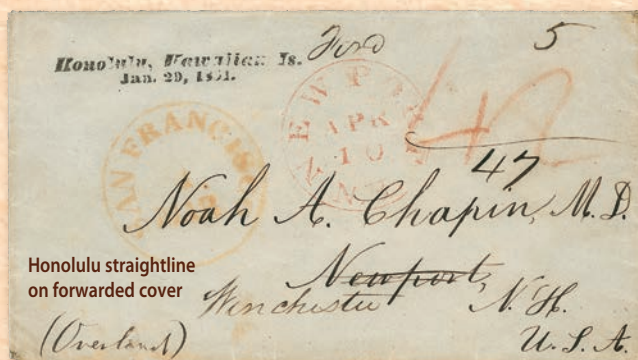 Ford 5
Honolulu, Hawaiian Is.
Jan. 29, 1851.
SAN FRANCISCO
NEWPORT N.H.
APR
10
42
47
Noah A. Chapin, M.D.
Newport,
Winchester N.H.
(Overland) U.S.A.
Honolulu straightline
on forwarded cover